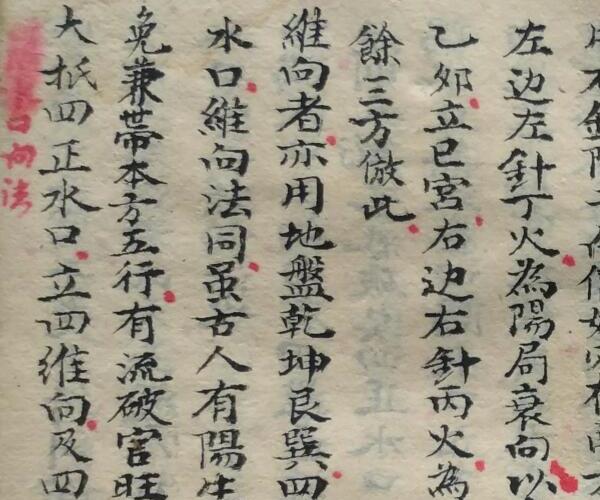 左边左針丁火為陽局衰向以
乙夘立巳宮右边右針丙火為
餘三方倣此
維向者亦用地盤乾坤艮巽四
水口維向法同虽古人有陽
免兼帶本方五行有流破官旺
大抵四正水口立四維向及四
口向法